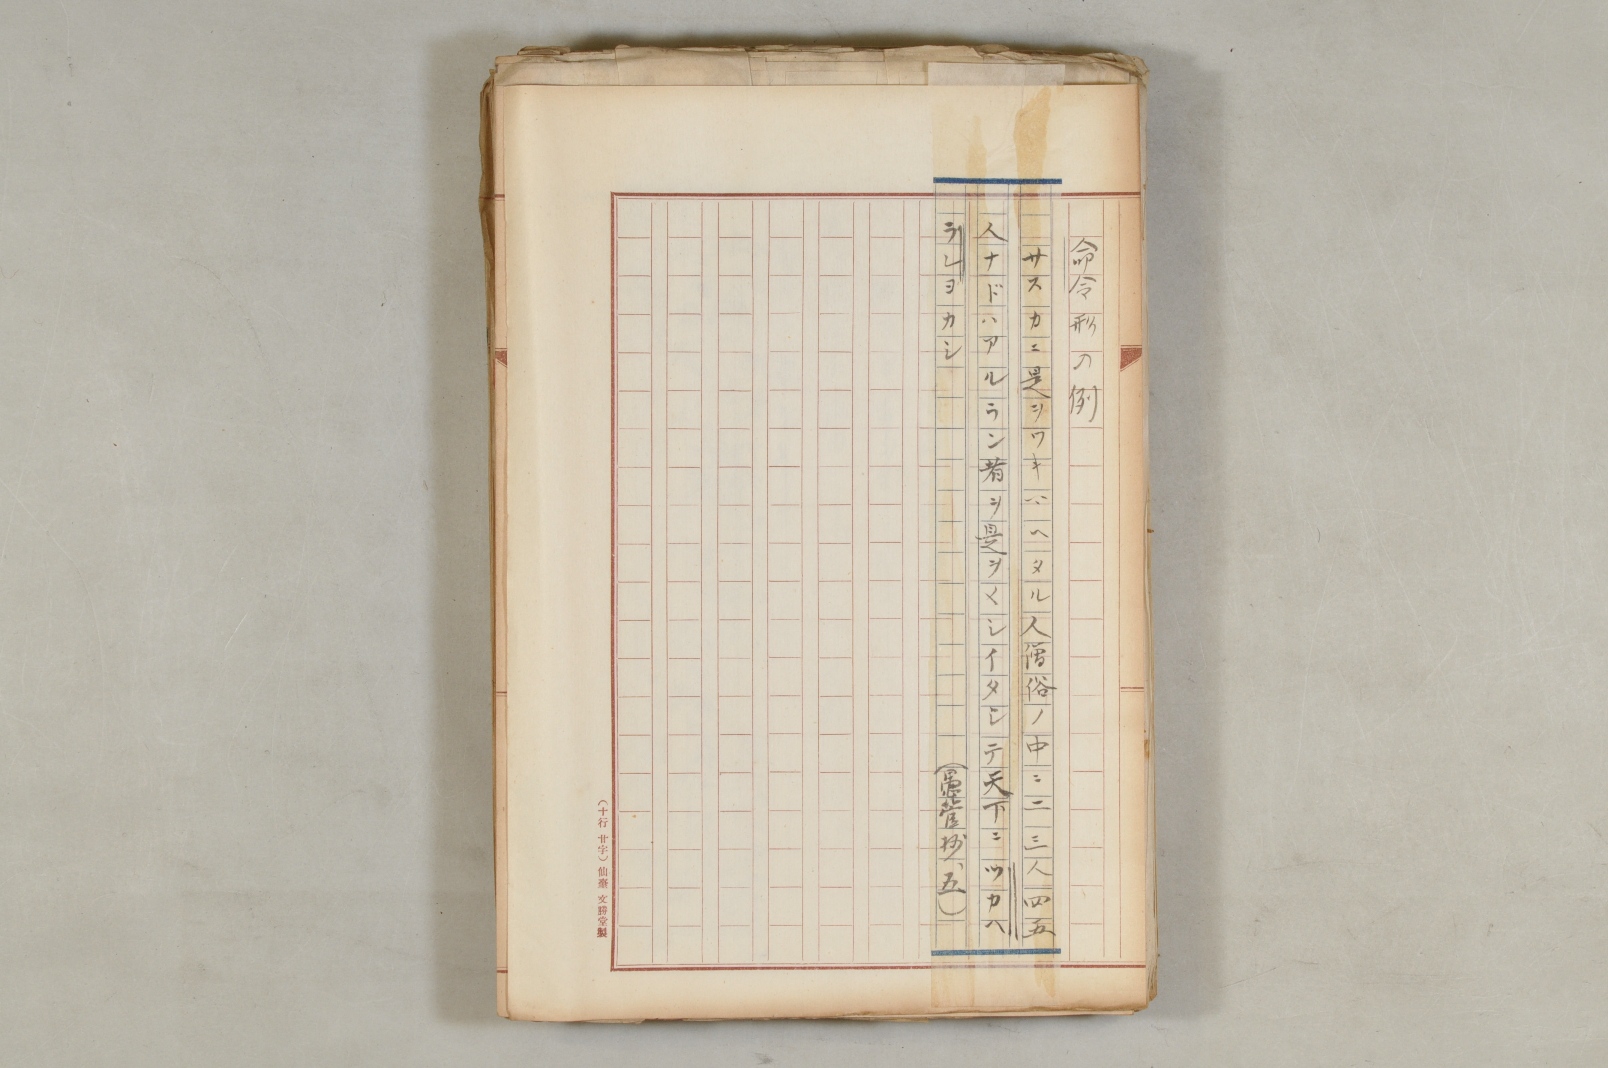 命令形の例
サスカニ是ヲワキハヘタル人僧俗ノ中ニ二三人四五
人ナドハアルラン者ヲ是ヲメシイタシテ天下ニツカハ
ラレヨカシ
(愚管抄、五)
(十行 廿字) 仙臺 文勝堂製